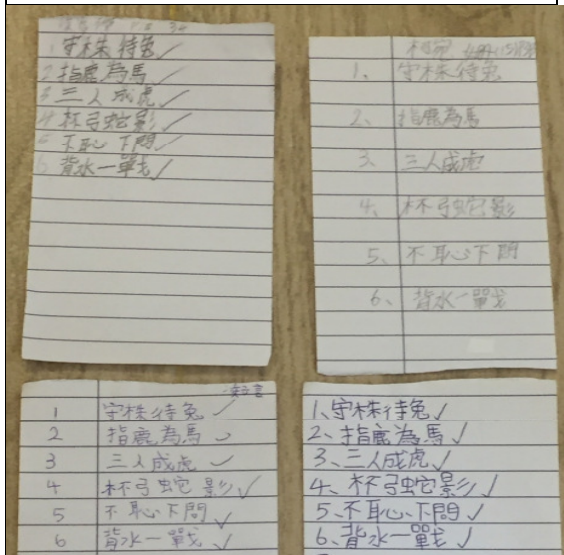 34
1 守株待兔 ✓
2 指鹿為馬 ✓
3 三人成虎 ✓
4 杯弓蛇影 ✓
5 不恥下問 ✓
6 背水一戰 ✓
1、 守株待兔
2、 指鹿為馬
3、 三人成虎
4、 杯弓蛇影
5、 不恥下問
6、 背水一戰
1 守株待兔 ✓
2 指鹿為馬 ✓
3 三人成虎 ✓
4 杯弓蛇影 ✓
5 不恥下問 ✓
6 背水一戰 ✓
1、守株待兔 ✓
2、指鹿為馬 ✓
3、三人成虎 ✓
4、杯弓蛇影 ✓
5、不恥下問 ✓
6、背水一戰 ✓